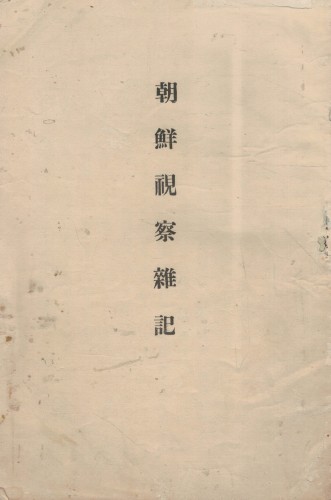 朝鮮視察雜記